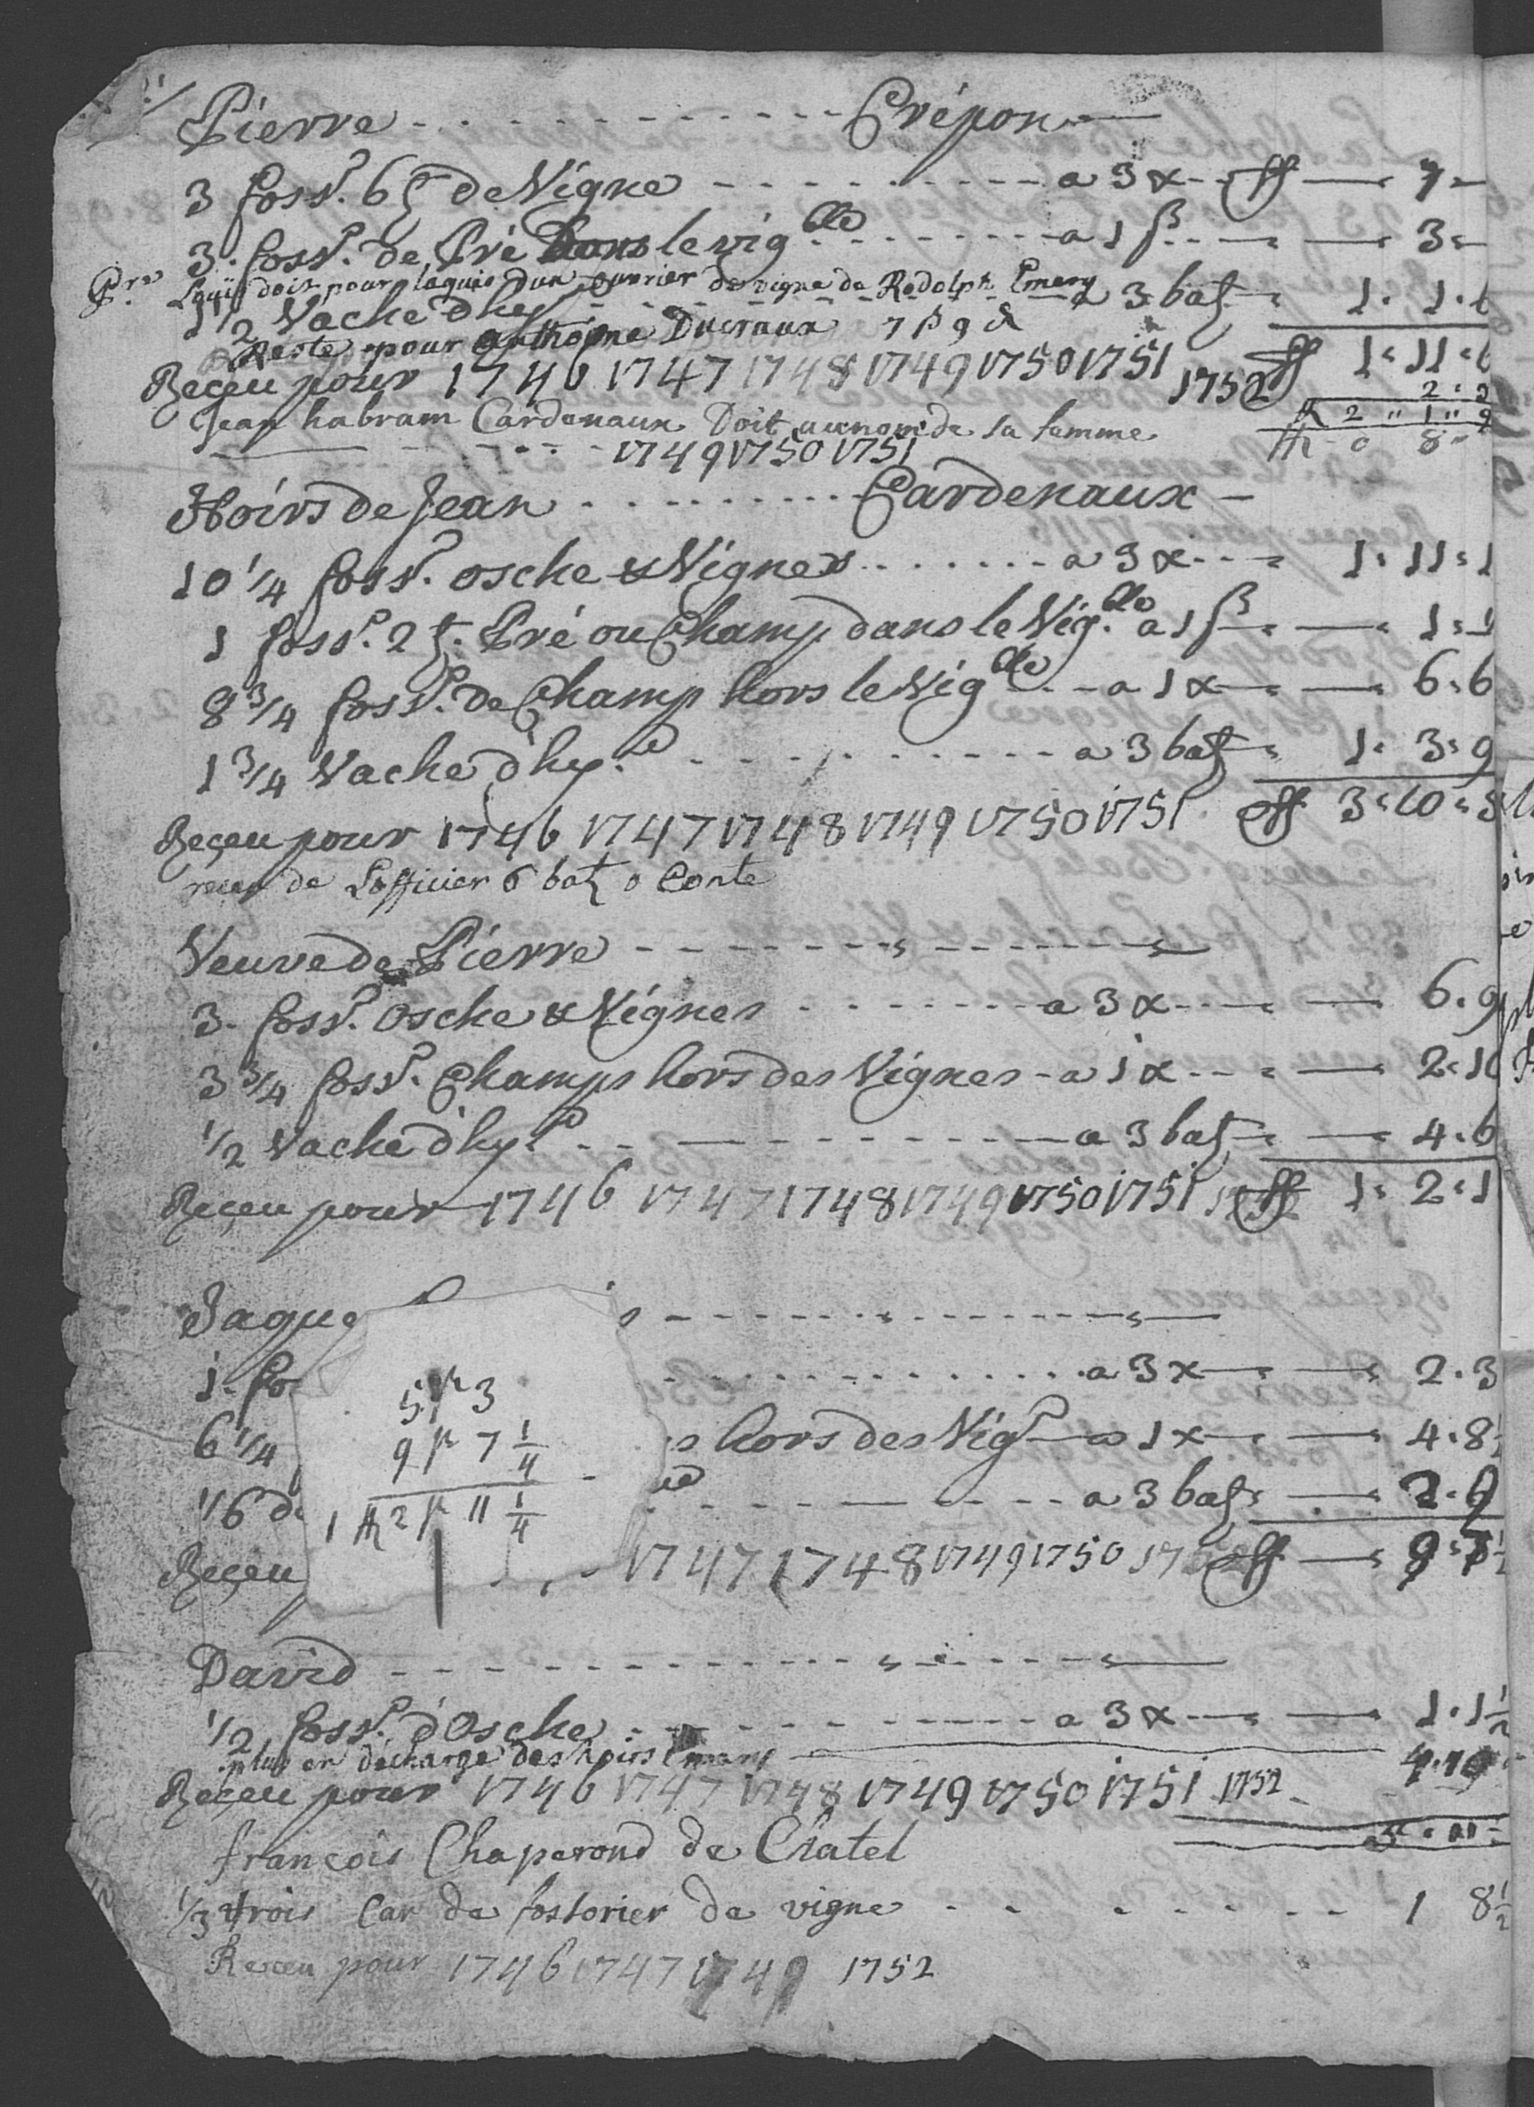 Pierre - - - - - - - - - - - Crépon
3 foss.r 6 ʒ de Vigne - - - - - - - - - a 3 x - - ff — 7 -
3. foss.r de Pré hors le vig.ble - - - - - - - a 1 ß - - — 3 -
P.re Louïs doit pour laquis dun ouvrier de vigne de Rodolph Emery
1 1/2 Vache d'hy - - - - - - - a 3 batz 1 . 1 . 6
Reste pour anthoine Ducraux 7 ß 9 d
Reçeu pour 1746 1747 1748 1749 1750 1751 1752 ff 1 . 11 . 6
2 . 3
Jean habram Cardenaux Doit au nom de sa femme ff 2 " 1 " 9
1749 1750 1751 ff 0 8 "
Hoirs de Jean - - - - - - - - - Cardenaux
10 1/4 foss.r osche & Vignes - - - - - - a 3 x - - - 1 . 11 . 1
1 foss.r 2 ʒ. Pré ou Champ dans le Vig.ble a 1 ß — 1 . 1
8 3/4 foss.r de Champ hors le Vig.ble - - a 1 x — 6 . 6
1 3/4 Vache d'hy.e - - - - - - - - - - a 3 batz 1 . 3 . 9
Reçeu pour 1746 1747 1748 1749 1750 1751 ff 3 . 10 . 5
receu de Lofficier 6 batz a Conte
Veuve de Pierre - - - - - - - - - - - -
3. foss.r Osche & Vignes - - - - - - - a 3 x - - - — 6 . 9
3 3/4 foss.r Champs hors des Vignes - a 1 x - - - — 2 . 10
1/2 Vache d'hy.e - - - - - - - - - a 3 batz — 4 . 6
Reçeu pour 1746 1747 1748 1749 1750 1751 ff 1 . 2 . 1
Jaque - - - - - - - - - - -
1. fo - - - - - - - - - - - a 3 x — 2 . 3
5 ß 3
6 1/4 s hors des Vig.r — a 1 x — 4 . 8
9 ß 7 1/4
1/6 de - - - - - - - - - a 3 batz — 2 . 9
1 ff 2 ß 11 1/4
Reçeu 1747 1748 1749 1750 ff — 9 . 7 1/2
David - - - - - - - - - - - - - -
1/2 foss.r d'Osche - - - - - - - - - - a 3 x — 1 . 1 1/2
plus en décharge des hoirs Emery 4 . 10
Reçeu pour 1746 1747 1748 1749 1750 1751 1752
françois Chaperond de Chatel
1/3 trois Car de fossorier de vigne - - - - - - - 1 8 1/2
Receu pour 1746 1747 1749 1752